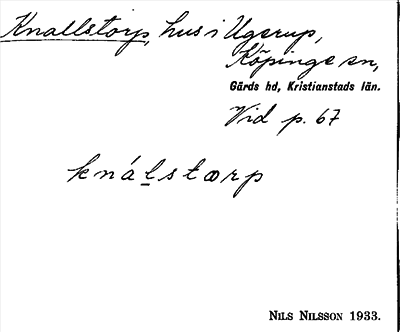 Knallstorp, hus i Ugerup,
Köpinge sn,
Gärds hd, Kristianstads län.
Vid p. 67
knálstorp
NILS NILSSON 1933.